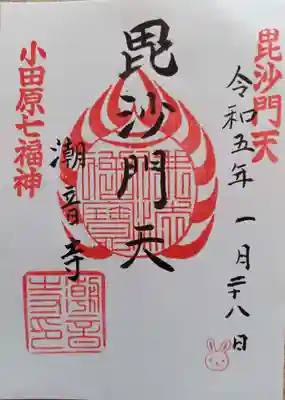 毘沙門天
令和五年 一月二十八日
毘沙門天
潮音寺
小田原七福神